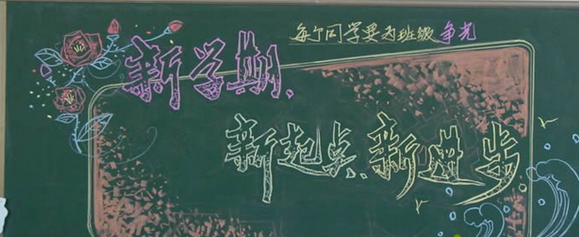 每个同学要为班级争光
新学期、
新起点、新进步